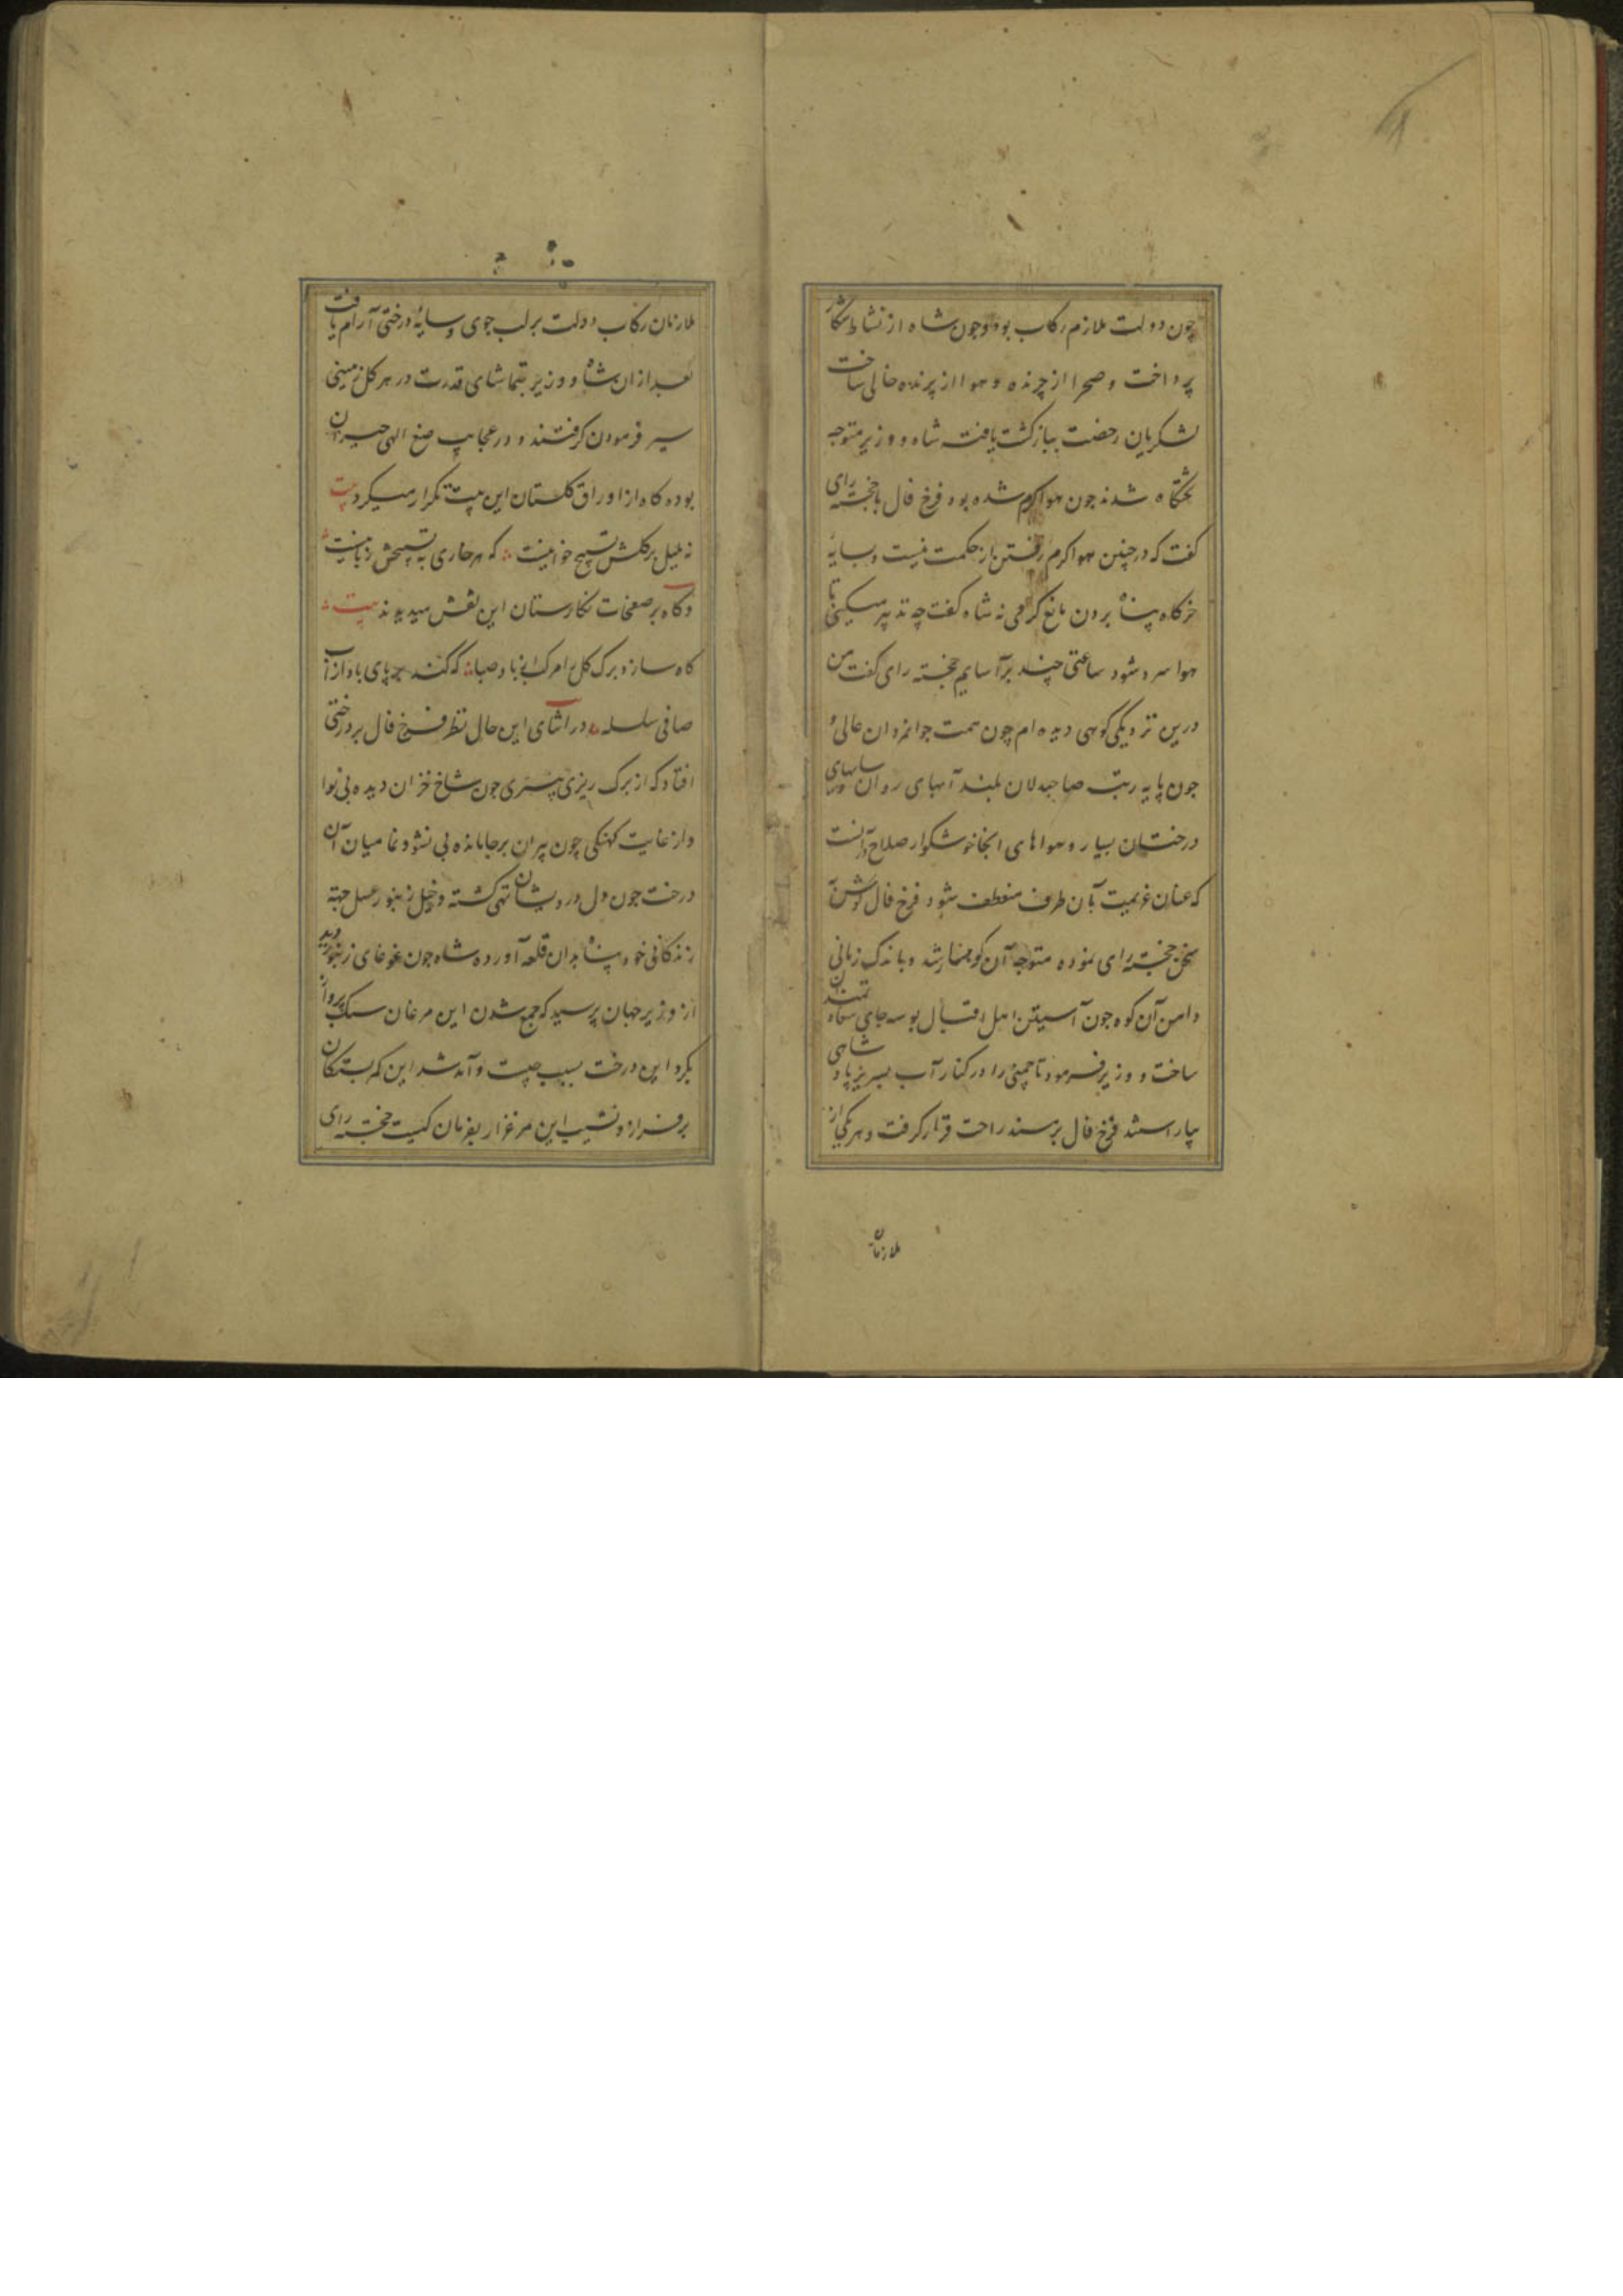 چون دولت ملازم رکاب بود و جون شاه از نشاط شکار
پرداخت و صحرا از چرنده و هوا از پرنده خالی ساخت
لشکریان رخصت ببازکشت یافت شاه و وزیر متوجه
تختگاه شدند جون هوا کرم شده بود فرخ فال با خجسته رای
کفت که در چنین هوا کرم رفتن از حکمت نیست و بسایه
خرکاه پناه بردن مانع کرمی نه شاه کفت چه تدبیر میکنی تا
هوا سرد شود ساعتی چند برآسایم خجسته رای کفت من
درین نزدیکی کوهی دیده ام چون همت جوانمردان عالی و
جون پایه رتبت صاحبدلان بلند آبهای روان سایهای
درختان بسیار و هواهای انجا خوشکوار صلاح در آنست
که عنان عزیمت بآن طرف منعطف شود فرخ فال کوش بر
سخن خجسته رای نموده متوجه آن کوهسار شد و باندک زمانی
دامن آن کوه جون آستین اهل اقبال بوسه جای سعادتمندان
ساخت و وزیر فرمود تا چمنی را در کنار آب بسریر پادشاهی
بیاراستند فرخ فال بر مسند راحت قرار کرفت و هر یکی از
ملازمان
ملازمان رکاب دولت بر لب جوی و سایهٔ درختی آرام یافت
بعد از ان شاه و وزیر بتماشای قدرت در هر کل زمینی
سیر فرمودن کرفتند و در عجایب صنع الهی حیران
بوده کاه از اوراق کلستان این بیت تکرار میکرد بیت
نه بلبل بر کلش تسبیح خوانیست که هر خاری به تسبیحش زبانیست
و کاه بر صفحات نکارستان این نقش میدیدند بیت
کاه سازد برک کل را مرکب از باد صبا که کند بر پای باد از آب
صافی سلسله در اثنای این حال نظر فرخ فال بر درختی
افتاد که از برک ریزی پیری جون شاخ خزان دیده بی نوا
و از غایت کهنکی چون پیران بر جا مانده بی نشو و نما میان آن
درخت جون دل درویشان تهی کشته و خیل زنبور عسل جهة
زندکانی خود پناه بدان قلعه آورده شاه جون غوغای زنبور دید
از وزیر جهان پرسید که جمع شدن این مرغان سبک پرواز
بکرد این درخت بسبب چیست و آمد شد این کمر بستکان
بر فراز و نشیب این مرغزار بفرمان کیست خجسته رای